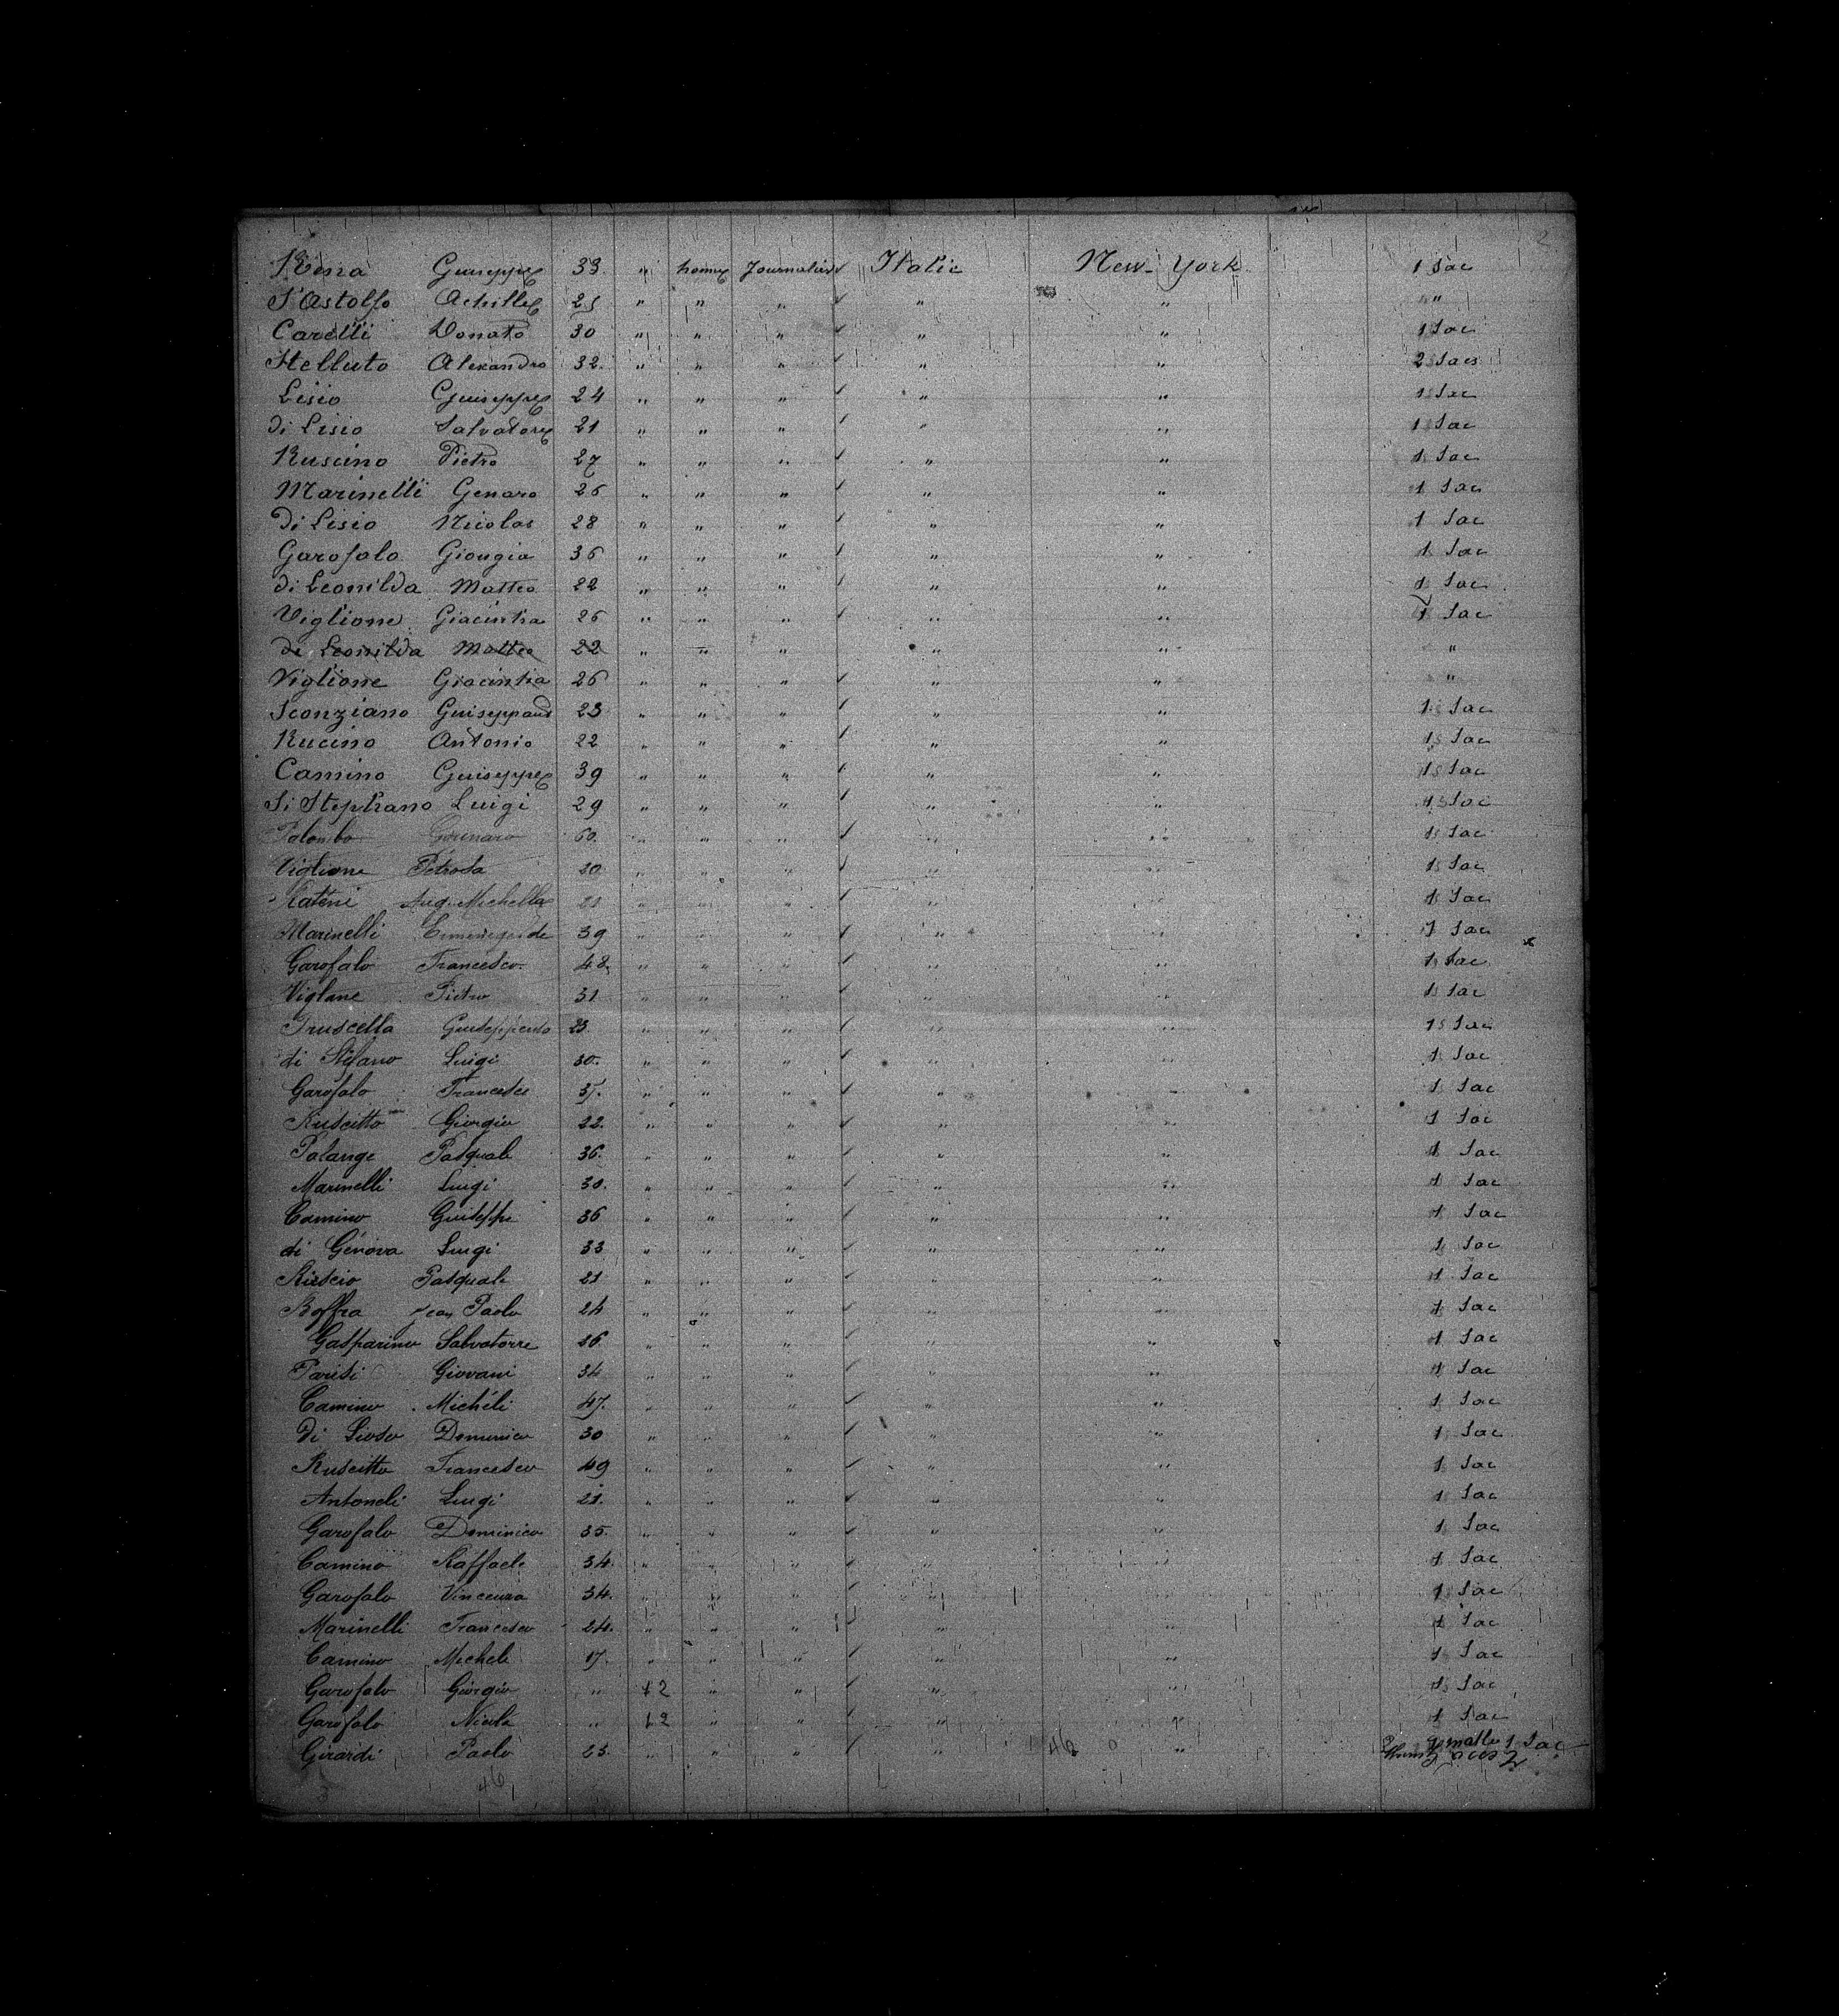 2
Giuseppe 33 " homme Journalier Italie New-York 1 Sac
d'Astolfo Achille 25 " " " " " "
Carelli Donato 30 " " " " " 1 Sac
Stelluto Alexandro 32. " " " " " 2 Sacs
Lisio Guiseppe 24 " " " " " 1 Sac
di Lisio Salvatore 21 " " " " " 1 Sac
Ruscino Pietro 27 " " " " " 1 Sac
Marinelli Genaro 26 " " " " " 1 Sac
di Lisio Nicolas 28 " " " " " 1 Sac
Garofalo Giorgia 36 " " " " " 1 Sac
di Leonilda Matteo 22 " " " " " 1 Sac
Viglione Giacintia 26 " " " " " 1 Sac
di Leonilda Matteo 22 " " " " " "
Viglione Giacintia 26 " " " " " "
Sconziano 23 " " " " " 1 Sac
Rucino Antonio 22 " " " " " 1 Sac
Camino Guiseppe 39 " " " " " 1 Sac
di Stephano Luigi 29 " " " " " 1 Sac
Palombo Gennaro 60. " " " " " 1 Sac
Viglione Petrosa " " " " " 1 Sac
Michella " " " " " 1 Sac
Marinelli 39 " " " " " 1 Sac
Garofalo Francesco 48. " " " " " 1 Sac
Viglane Pietro 31 " " " " " 1 Sac
Truscella 23 " " " " " 1 Sac
di Stefano Luigi 30. " " " " " 1 Sac
Garofalo Francesco " " " " " 1 Sac
Ruscitto Giorgio 22. " " " " " 1 Sac
Palange Pasquale 36. " " " " " 1 Sac
Marinelli Luigi 30. " " " " " 1 Sac
Camino Guiseppe 36 " " " " " 1 Sac
di Génova Luigi 33 " " " " " 1 Sac
Ruscio Pasquale 21 " " " " " 1 Sac
Jean Paolo 24 " " " " " 1 Sac
Gasparino Salvatorre 26. " " " " " 1 Sac
Parisi Giovani 34 " " " " " 1 Sac
Camino Michéli 47. " " " " " 1 Sac
Di Lioso Dominico 30 " " " " " 1 Sac
Ruscitto Francesco 49 " " " " " 1 Sac
Antoneli Luigi 21. " " " " " 1 Sac
Garofalo Dominico 35. " " " " " 1 Sac
Camino Raffaele 34. " " " " " 1 Sac
Garofalo Vincenza 34. " " " " " 1 Sac
Marinelli Francesco 24. " " " " " 1 Sac
Camino Michele 17. " " " " " 1 Sac
Garofalo Giorgio " 12 " " " " 1 Sac
Garofalo Nicola " 12 " " " " 1 Sac
Girardi Paolo 23 " " " " 46 0 " 1 Sac
46